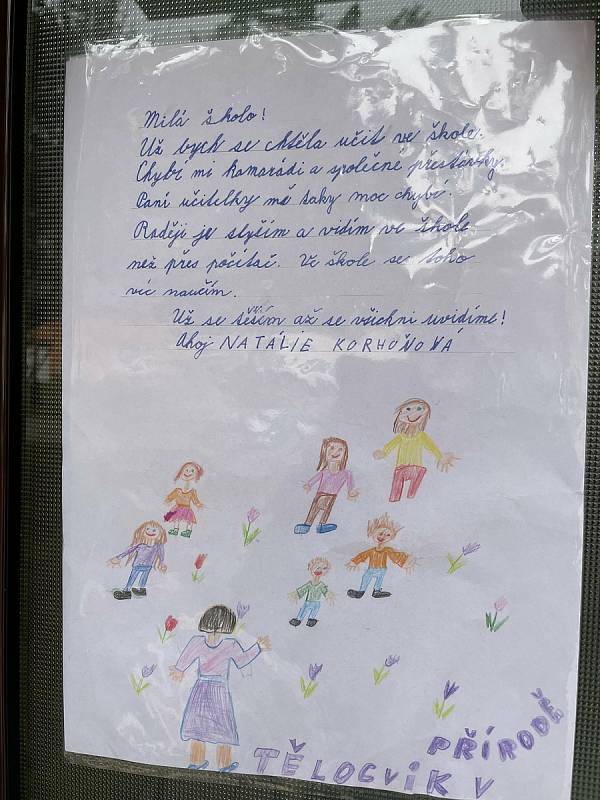 Milá školo!
Už bych se chtěla učit ve škole.
Chybí mi kamarádi a společné přestávky.
Paní učitelky mě taky moc chybí.
Raději je slyším a vidím ve škole
než přes počítač. Ve škole se toho
víc naučím.
Už se těším až se všichni uvidíme!
Ahoj NATÁLIE KORHOŇOVÁ
TĚLOCVIK V
PŘÍRODĚ